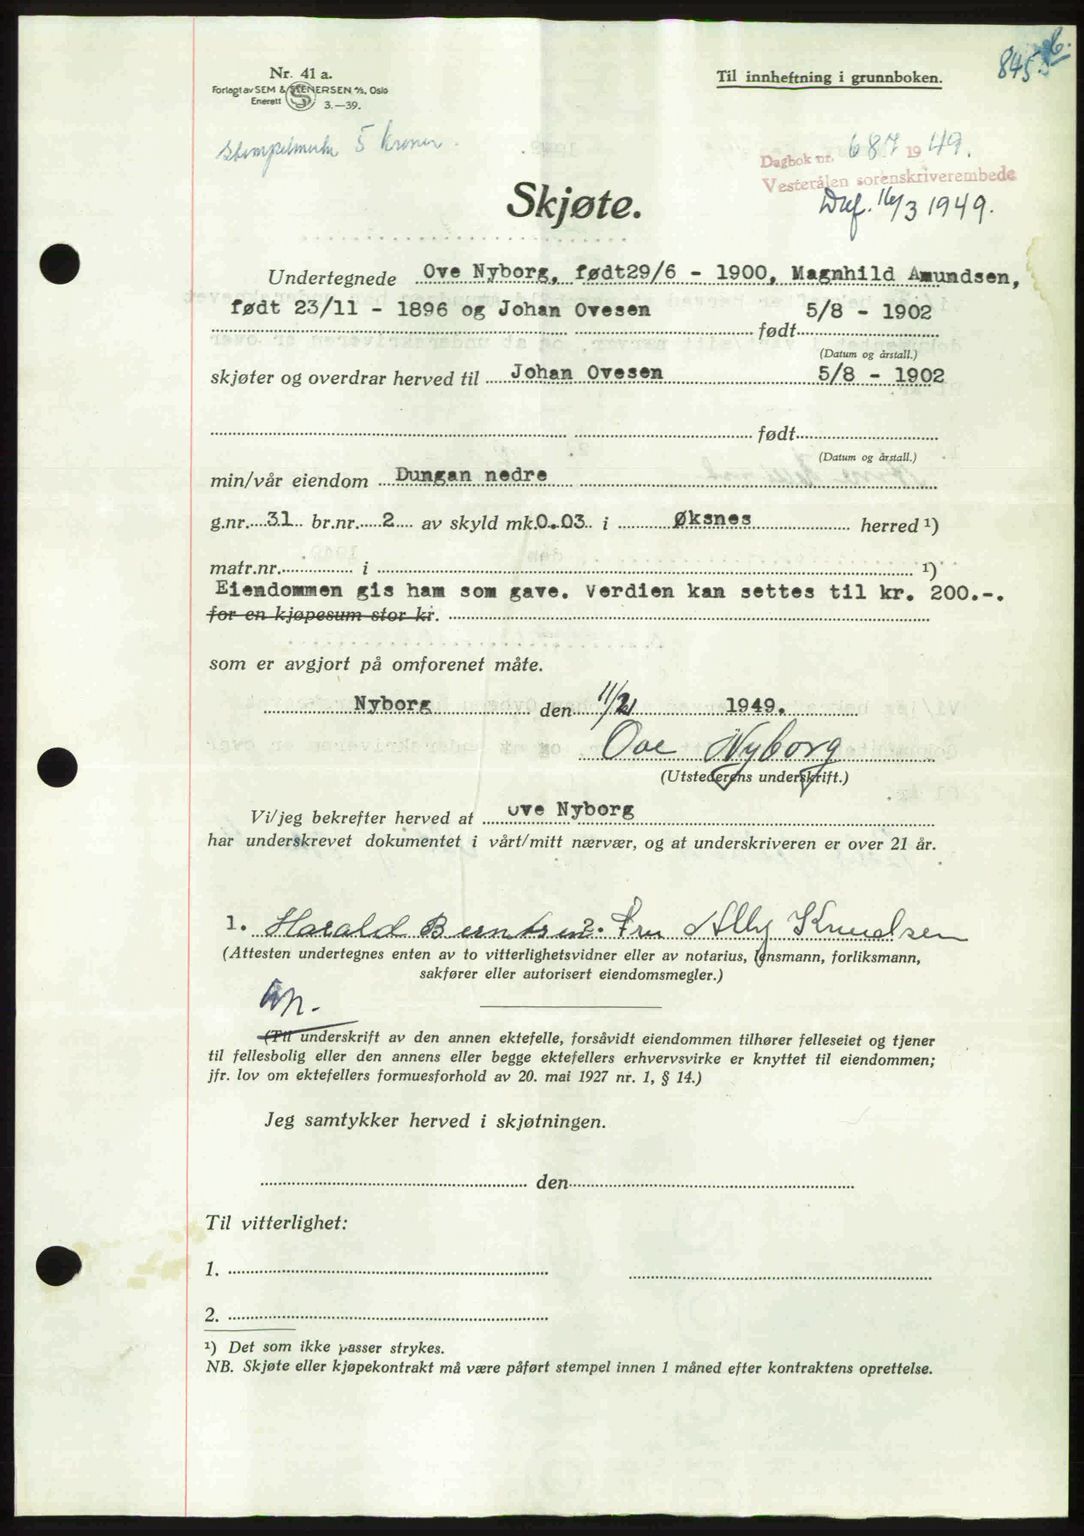 845.
Nr. 41 a.
Forlagt av SEM & STENERSEN A/S, Oslo
Enerett 3.—39.
Til innheftning i grunnboken.
Stempelmerke 5 kroner.
Dagbok nr. 687 1949.
Vesterålen sorenskriverembede
16/3 1949.
Skjøte.
Undertegnede Ove Nyborg, født29/6 - 1900, Magnhild Amundsen,
født 23/11 - 1896 og Johan Ovesen født 5/8 - 1902
(Datum og årstall.)
skjøter og overdrar herved til Johan Ovesen 5/8 - 1902
født
(Datum og årstall.)
min/vår eiendom Dungan nedre
g.nr. 31 br.nr. 2 av skyld mk. 0.03 i Øksnes herred ¹)
matr.nr. i ¹)
Eiendommen gis ham som gave. Verdien kan settes til kr. 200.-.
for en kjøpesum stor kr.
som er avgjort på omforenet måte.
Nyborg den 11/2 1949.
Ove Nyborg
(Utstederens underskrift.)
Vi/jeg bekrefter herved at Ove Nyborg
har underskrevet dokumentet i vårt/mitt nærvær, og at underskriveren er over 21 år.
1. Harald Berntsen 2. Fru Alby Knudsen
(Attesten undertegnes enten av to vitterlighetsvidner eller av notarius, lensmann, forliksmann,
sakfører eller autorisert eiendomsmegler.)
(Til underskrift av den annen ektefelle, forsåvidt eiendommen tilhører felleseiet og tjener
til fellesbolig eller den annens eller begge ektefellers erhvervsvirke er knyttet til eiendommen;
jfr. lov om ektefellers formuesforhold av 20. mai 1927 nr. 1, § 14.)
Jeg samtykker herved i skjøtningen.
den
Til vitterlighet:
1.
2.
¹) Det som ikke passer strykes.
NB. Skjøte eller kjøpekontrakt må være påført stempel innen 1 måned efter kontraktens oprettelse.